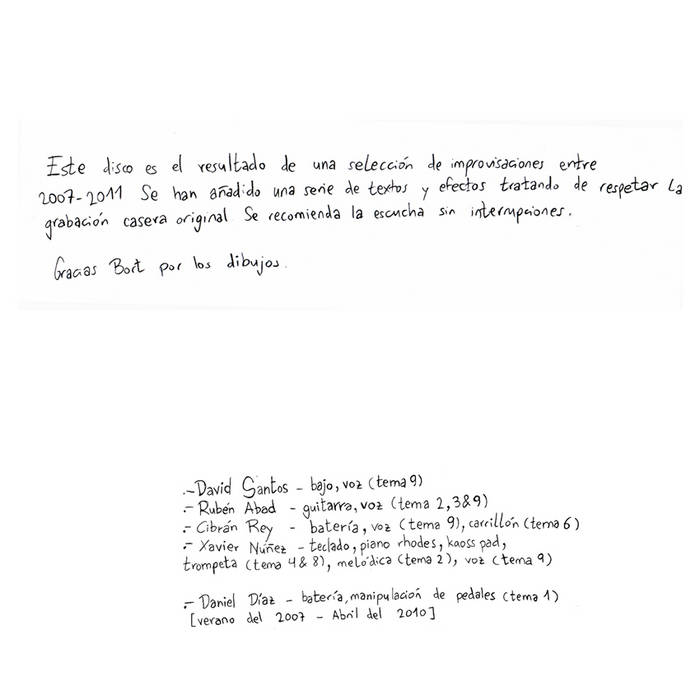 Este disco es el resultado de una selección de improvisaciones entre
2007-2011 Se han añadido una serie de textos y efectos tratando de respetar la
grabación casera original Se recomienda la escucha sin interrupciones.
Gracias Bort por los dibujos.
.-David Santos - bajo, voz (tema 9)
.- Rubén Abad - guitarra, voz (tema 2, 3 & 9)
.- Cibrán Rey - batería, voz (tema 9), carrillón (tema 6)
.- Xavier Núñez - teclado, piano rhodes, kaoss pad,
trompeta (tema 4 & 8), melódica (tema 2), voz (tema 9)
.- Daniel Díaz - batería, manipulación de pedales (tema 1)
[verano del 2007 - Abril del 2010]